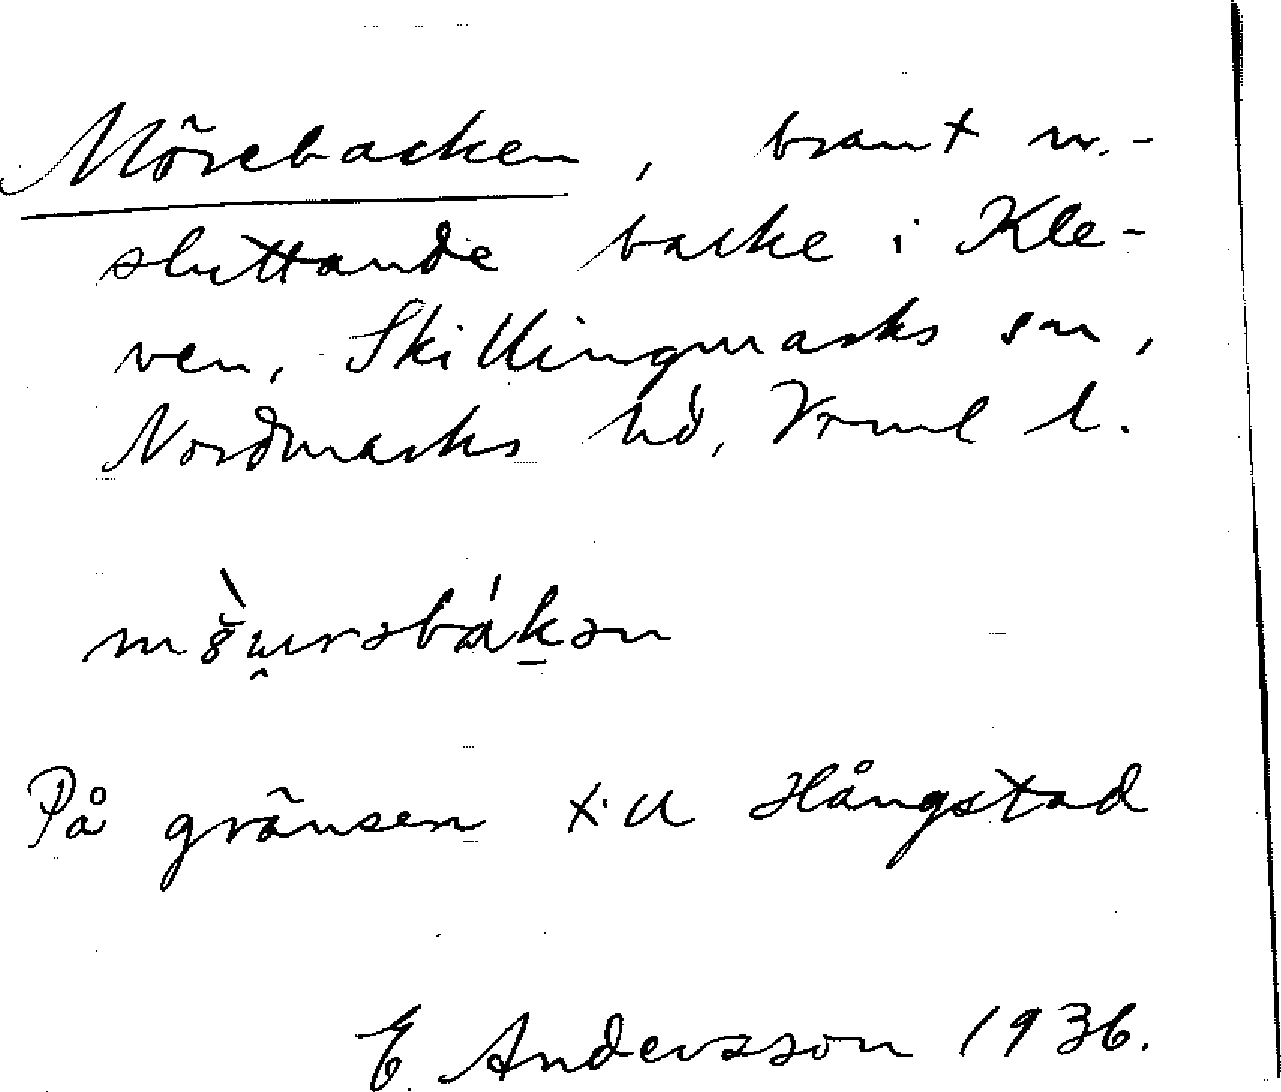 Mörebacken, brant n.-
sluttande backe i Kle-
ven, Skillingmarks sn,
Nordmarks hd, Vrml l.
På gränsen till Hångstad
E. Andersson 1936.